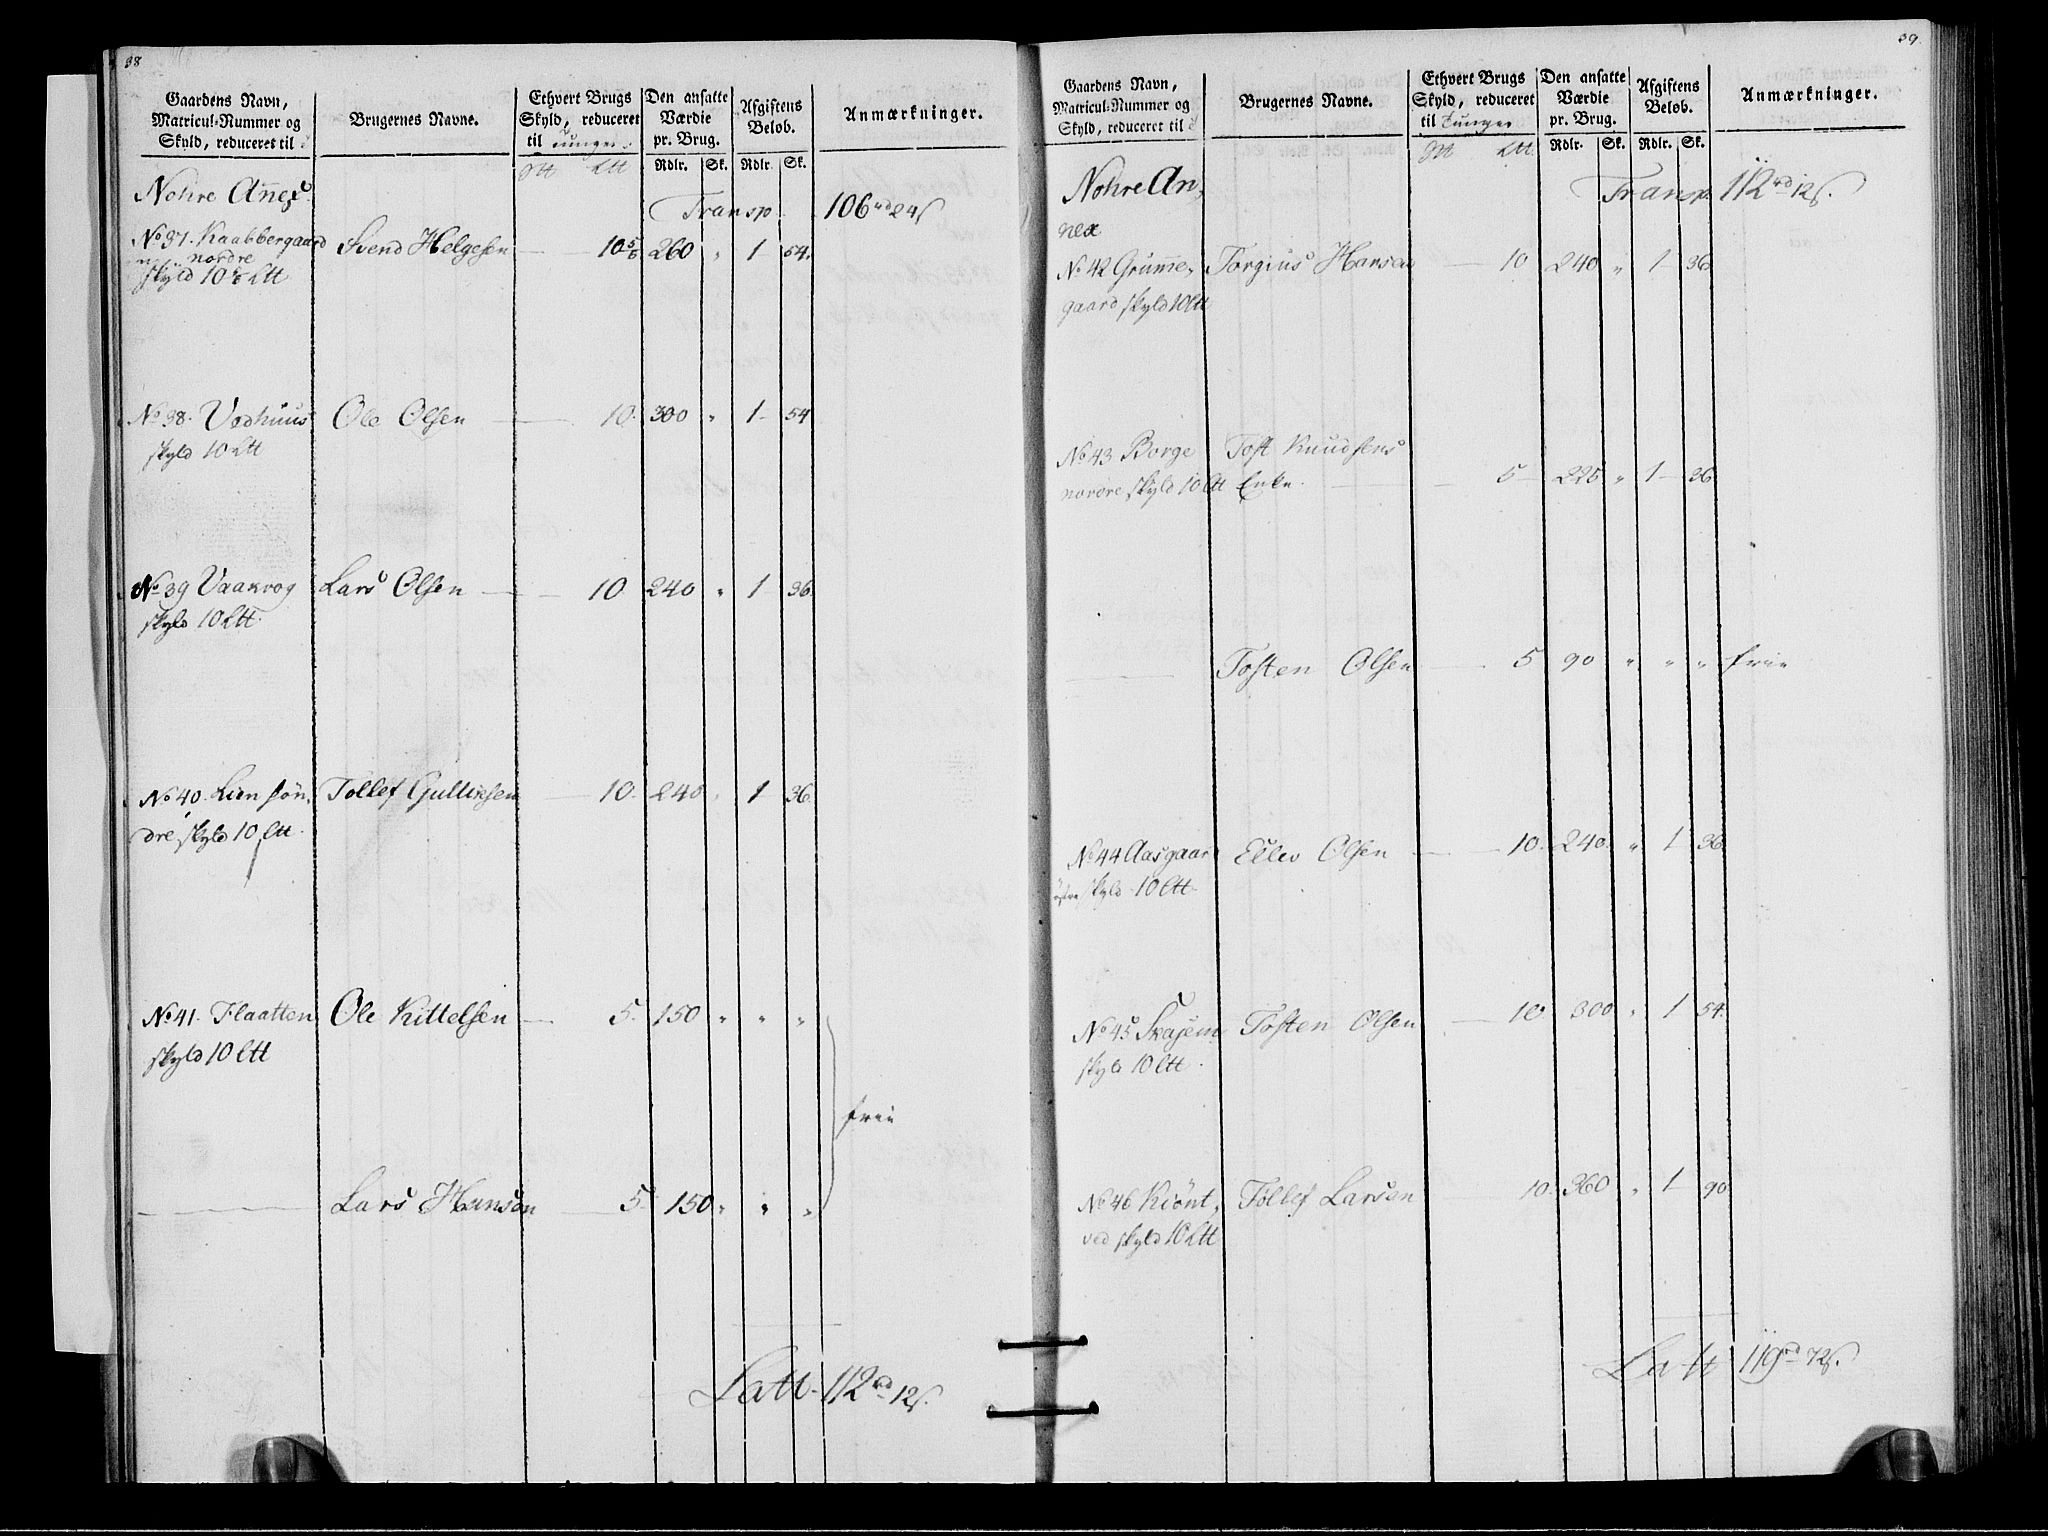 38
Gaardens Navn, Matricul-Nummer og Skyld, reduceret til
Brugernes Navne.
Ethvert Brugs Skyld, reduceret til Tunger
Den ansatte Værdie pr. Brug.
Afgiftens Beløb.
Anmærkninger.
Rdlr. Sk. Rdlr. Sk.
Nohre Annex
Transp 106 rd 24 s
No 37. Kaabbergaard Svend Helgesen 10 5/6 260 " 1 54.
nordre
skyld 10 5/6 Ltt
No 38. Vodhuus Ole Olsen 10. 300 " 1 54
skyld 10 Ltt
No 39 Vaakrog Lars Olsen 10 240 " 1 36.
skyld 10 Ltt.
No 40. Lien søn, Tollef Gullicksen 10. 240 " 1 36.
dre skyld 10 Ltt.
No 41. Flaatten Ole Kittelsen 5. 150 " " "
skyld 10 Ltt
frie
Lars Hansen 5. 150 " " "
Latt. 112 rd 12 s.
39.
Gaardens Navn, Matricul-Nummer og Skyld, reduceret til
Brugernes Navne.
Ethvert Brugs Skyld, reduceret til Tunger
Den ansatte Værdie pr. Brug.
Afgiftens Beløb.
Anmærkninger.
Rdlr. Sk. Rdlr. Sk.
Nohre An,
nex
Transp. 112 rd 12 s.
No 42 Grumme, Torgius Hansen 10 240 " 1 36
gaard skyld 10 Ltt
No 43 Borge Tost Knudsens
nordre skyld 10 Ltt Enke. 5 225 " 1 36
Tosten Olsen 5 90 " " " frie
No 44 Aasgaard Ellev Olsen 10. 240. " 1 36
østre skyld 10 Ltt.
No 45 Skajem Tosten Olsen 10 300 " 1 54.
skyld 10 Ltt.
No 46 Kiønt, Tollef Larsen 10. 360 " 1 90
ved skyld 10 Ltt
Latt 119 rd 72 s.